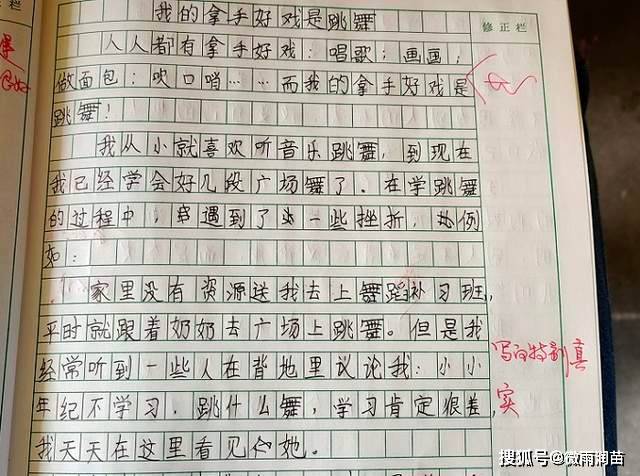 我的拿手好戏是跳舞
修正栏
人人都有拿手好戏：唱歌；画画；
做面包；吹口哨……而我的拿手好戏是
跳舞！
我从小就喜欢听音乐跳舞，到现在
我已经学会好几段广场舞了。在学跳舞
的过程中，遇到了一些挫折，比例
如：
家里没有资源送我去上舞蹈补习班，
平时就跟着奶奶去广场上跳舞。但是我
经常听到一些人在背地里议论我：小小
年纪不学习，跳什么舞，学习肯定很差，
我天天在这里看见她。
写的特别真
实
搜狐号@微雨润苗